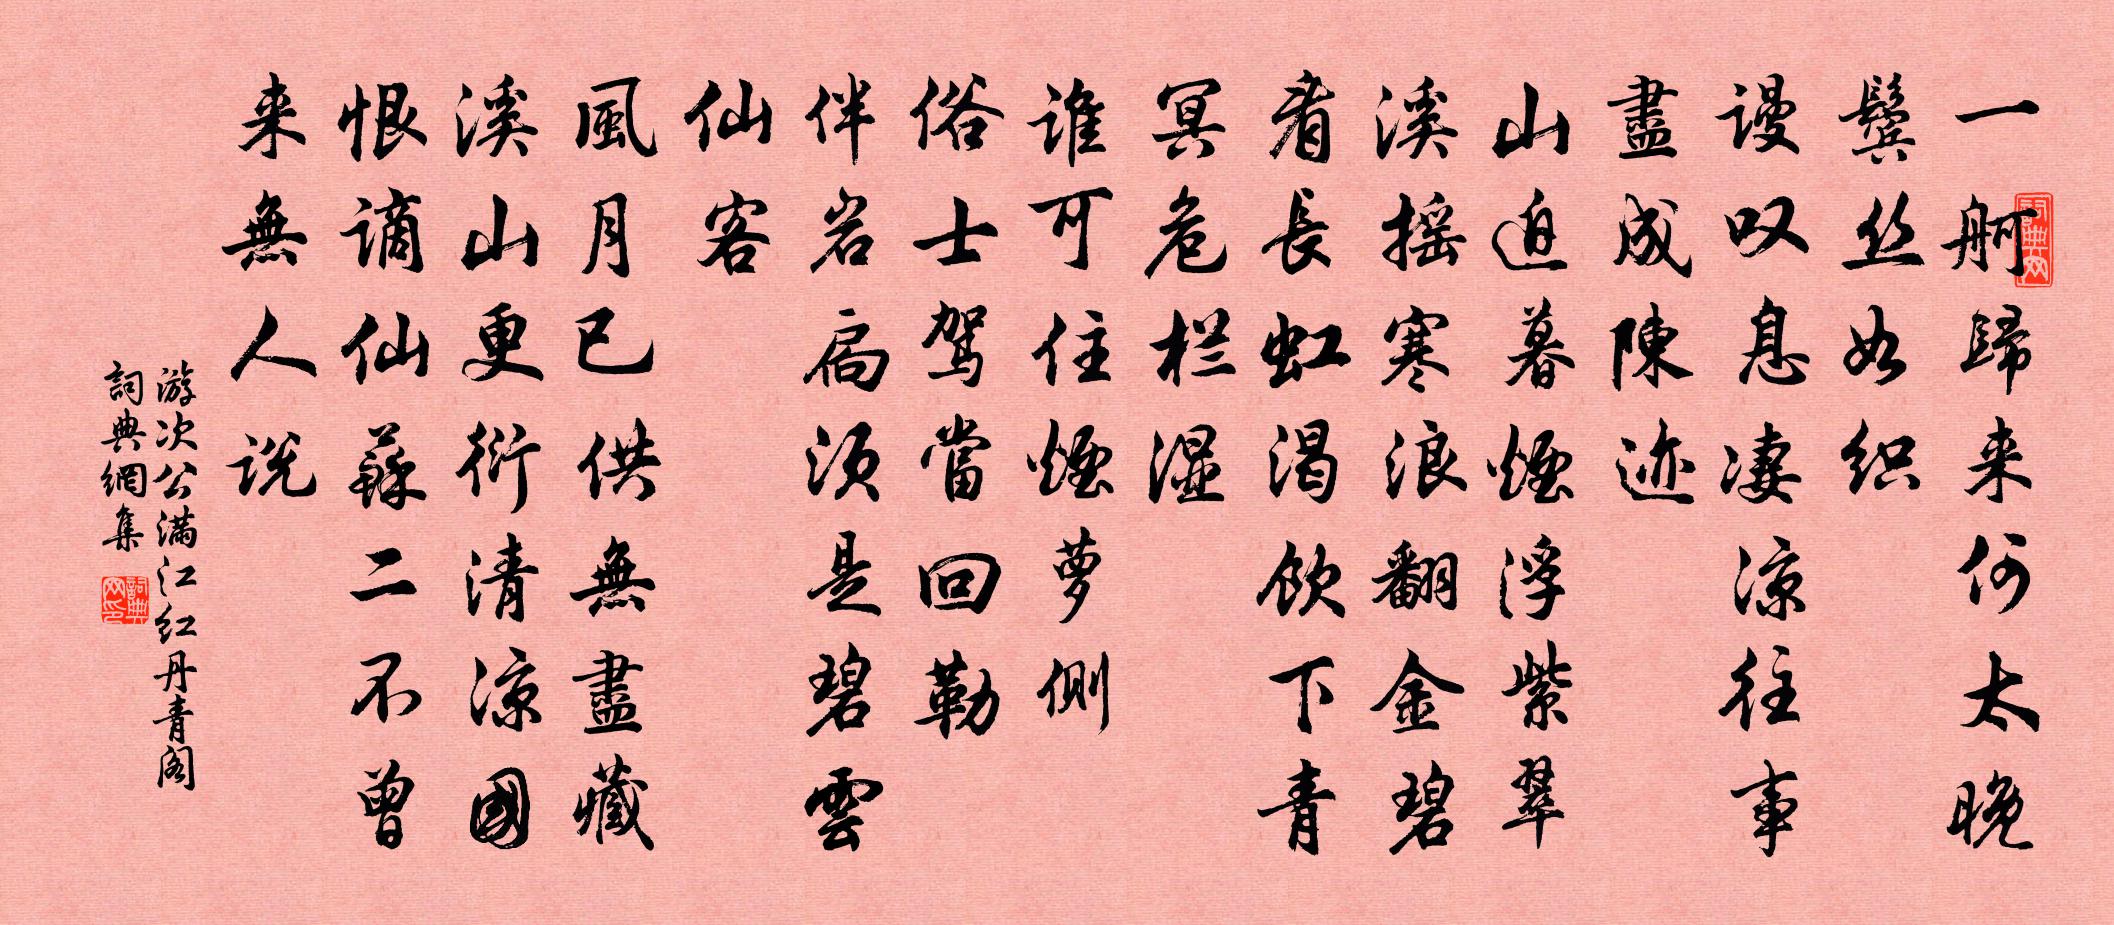 一舸歸来何太晚
鬓丝如织
谩叹息凄凉往事
盡成陳迹
山迫暮煙浮紫翠
溪摇寒浪翻金碧
看長虹渴飲下青
冥危栏湿
誰可住煙萝側
俗士驾當回勒
伴岩扃须是碧雲
仙客
風月已供無盡藏
溪山更衍清凉國
恨谪仙蘇二不曾
来無人说
游次公满江红丹青阁
詞典網集